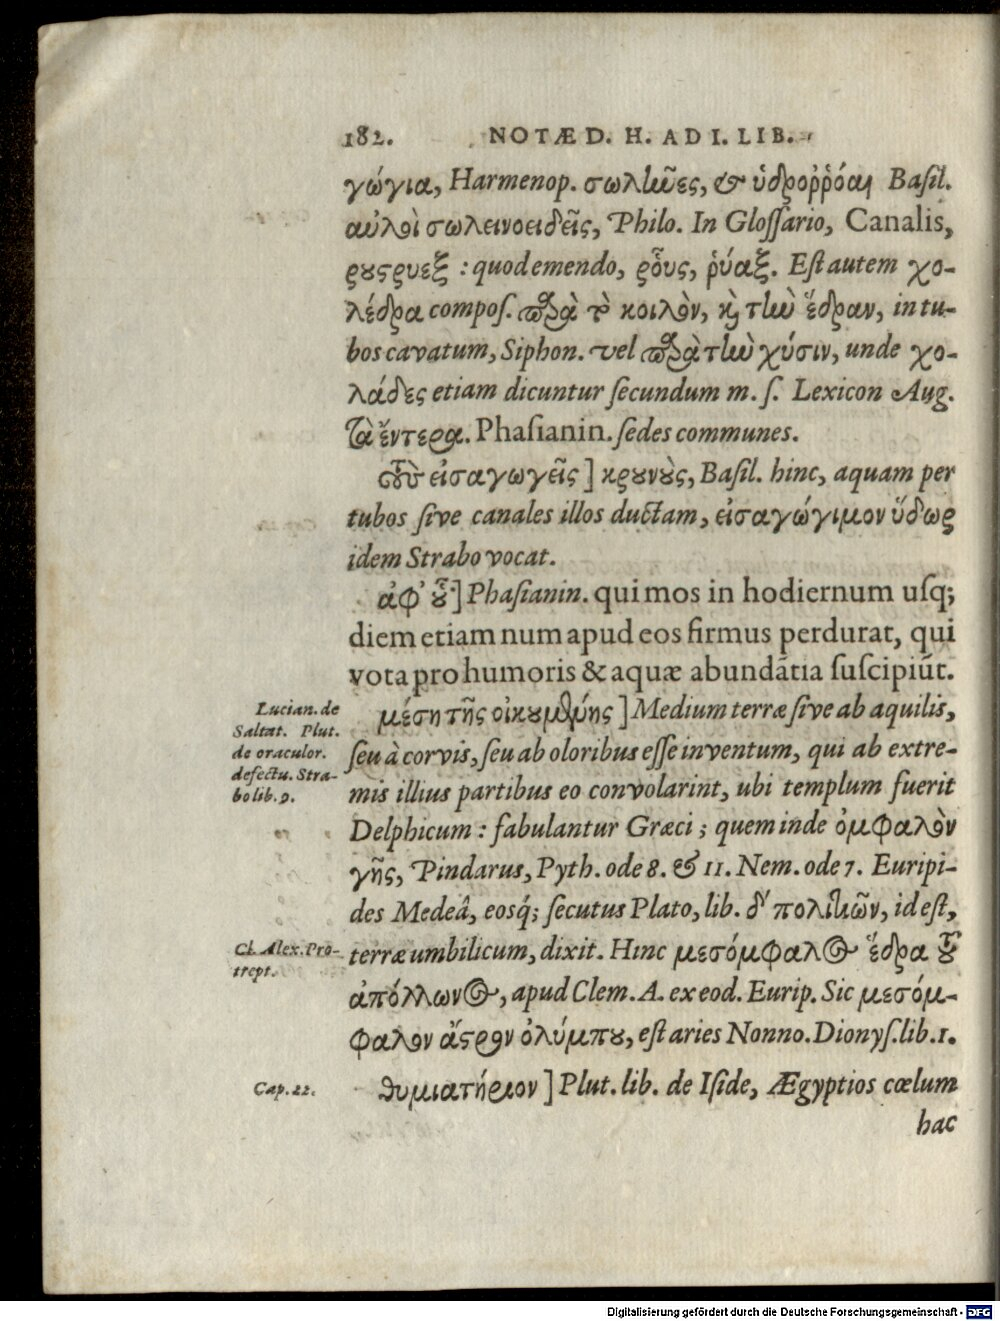 182. NOTÆ D. H. AD I. LIB.
γώγια, Harmenop. σωλῆνες, & ὑδροῤῥόαι Basil.
αὐλοὶ σωλεινοειδεῖς, Philo. In Glossario, Canalis,
ρουςρυεξ : quod emendo, ροῦς, ῥύαξ. Est autem χο-
λέδρα compos. παρὰ τὸ κοιλὸν, καὶ τὴν ἕδραν, in tu-
bos cavatum, Siphon. vel παρὰ τὴν χύσιν, unde χο-
λάδες etiam dicuntur secundum m. s. Lexicon Aug.
τὰ ἔντερα. Phasianin. sedes communes.
τοὺς εἰσαγωγεῖς] κρουνοὺς, Basil. hinc, aquam per
tubos sive canales illos ductam, εἰσαγώγιμον ὕδωρ
idem Strabo vocat.
ἀφ' οὗ] Phasianin. qui mos in hodiernum usq;
diem etiam num apud eos firmus perdurat, qui
vota pro humoris & aquæ abundātia suscipiūt.
Lucian. de
Saltat. Plut.
de oraculor.
defectu. Stra-
bo lib. 9.
μέση τῆς οἰκουμένης] Medium terræ sive ab aquilis,
seu à corvis, seu ab oloribus esse inventum, qui ab extre-
mis illius partibus eo convolarint, ubi templum fuerit
Delphicum : fabulantur Græci ; quem inde ὀμφαλὸν
γῆς, Pindarus, Pyth. ode 8. & 11. Nem. ode 7. Euripi-
des Medeâ, eosq́; secutus Plato, lib. δ' πολιτικῶν, id est,
Cl. Alex. Pro-
trept.
terræ umbilicum, dixit. Hinc μεσόμφαλος ἕδρα τοῦ
ἀπόλλωνος, apud Clem. A. ex eod. Eurip. Sic μεσόμ-
φαλον ἄστρον ὀλύμπου, est aries Nonno. Dionys. lib. 1.
Cap. 22.
θυμιατήριον] Plut. lib. de Iside, Ægyptios cœlum
hac
Digitalisierung gefördert durch die Deutsche Forschungsgemeinschaft - DFG